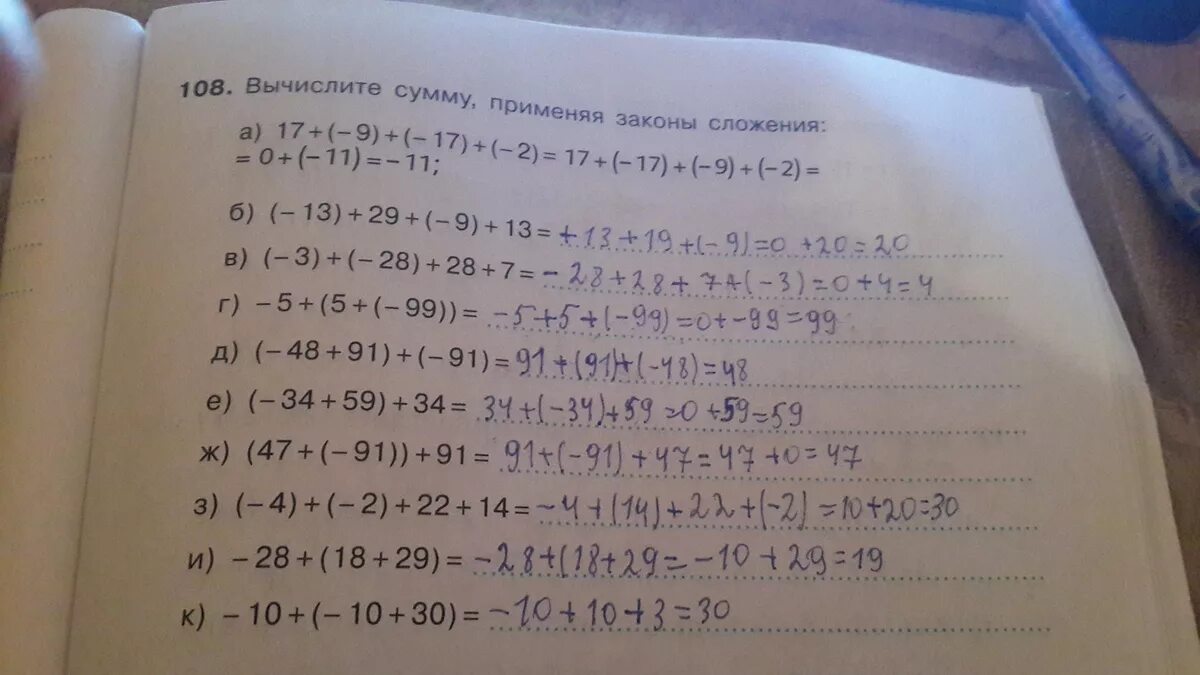 108. Вычислите сумму, применяя законы сложения:
а) 17 + (– 9) + (– 17) + (– 2) = 17 + (– 17) + (– 9) + (– 2) =
= 0 + (– 11) = – 11;
б) (– 13) + 29 + (– 9) + 13 = +13 +19 +(-9)=0 +20=20
в) (– 3) + (– 28) + 28 + 7 = - 28 + 28 + 7+(-3)=0+4=4
г) – 5 + (5 + (– 99)) = -5+5+(-99)=0+-99=99
д) (– 48 + 91) + (– 91) = 91 +(91)+(-48)=48
е) (– 34 + 59) + 34 = 34+(-34)+59=0+59=59
ж) (47 + (– 91)) + 91 = 91+(-91)+47=47+0=47
з) (– 4) + (– 2) + 22 + 14 = -4+(14)+22+(-2)=10+20=30
и) – 28 + (18 + 29) = -28+(18+29=-10+29=19
к) – 10 + (– 10 + 30) = -10+10+3=30